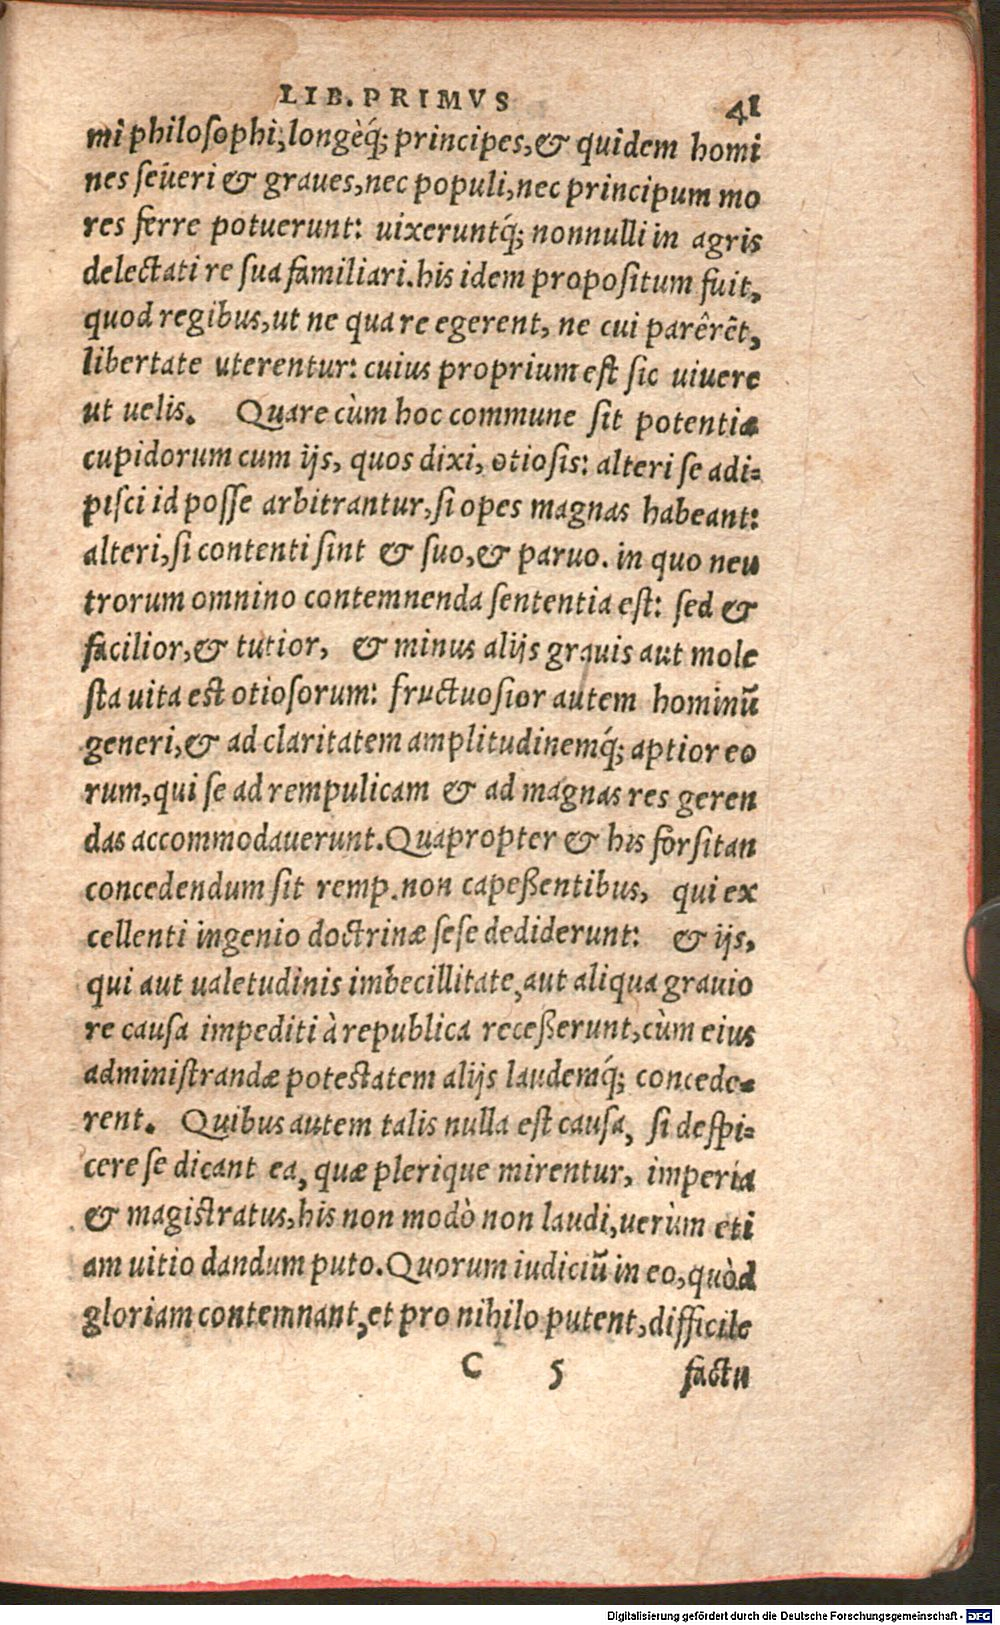 LIB. PRIMVS 41
mi philosophi, longèq́; principes, & quidem homi
nes seueri & graues, nec populi, nec principum mo
res ferre potuerunt: uixeruntq́; nonnulli in agris
delectati re sua familiari. his idem propositum fuit,
quod regibus, ut ne qua re egerent, ne cui parêrẽt,
libertate uterentur: cuius proprium est sic uiuere
ut uelis. Quare cùm hoc commune sit potentiæ
cupidorum cum ijs, quos dixi, otiosis: alteri se adi-
pisci id posse arbitrantur, si opes magnas habeant:
alteri, si contenti sint & suo, & paruo. in quo neu
trorum omnino contemnenda sententia est: sed &
facilior, & tutior, & minus alijs grauis aut mole
sta uita est otiosorum: fructuosior autem hominũ
generi, & ad claritatem amplitudinemq́; aptior eo
rum, qui se ad rempulicam & ad magnas res geren
das accommodauerunt. Quapropter & his forsitan
concedendum sit remp. non capeßentibus, qui ex
cellenti ingenio doctrinæ sese dediderunt: & ijs,
qui aut ualetudinis imbecillitate, aut aliqua grauio
re causa impediti à republica receßerunt, cùm eius
administrandæ potestatem alijs laudemq́; concede-
rent. Quibus autem talis nulla est causa, si despi-
cere se dicant ea, quæ plerique mirentur, imperia
& magistratus, his non modò non laudi, uerùm eti
am uitio dandum puto. Quorum iudiciũ in eo, quòd
gloriam contemnant, et pro nihilo putent, difficile
C 5 factu
Digitalisierung gefördert durch die Deutsche Forschungsgemeinschaft - DFG